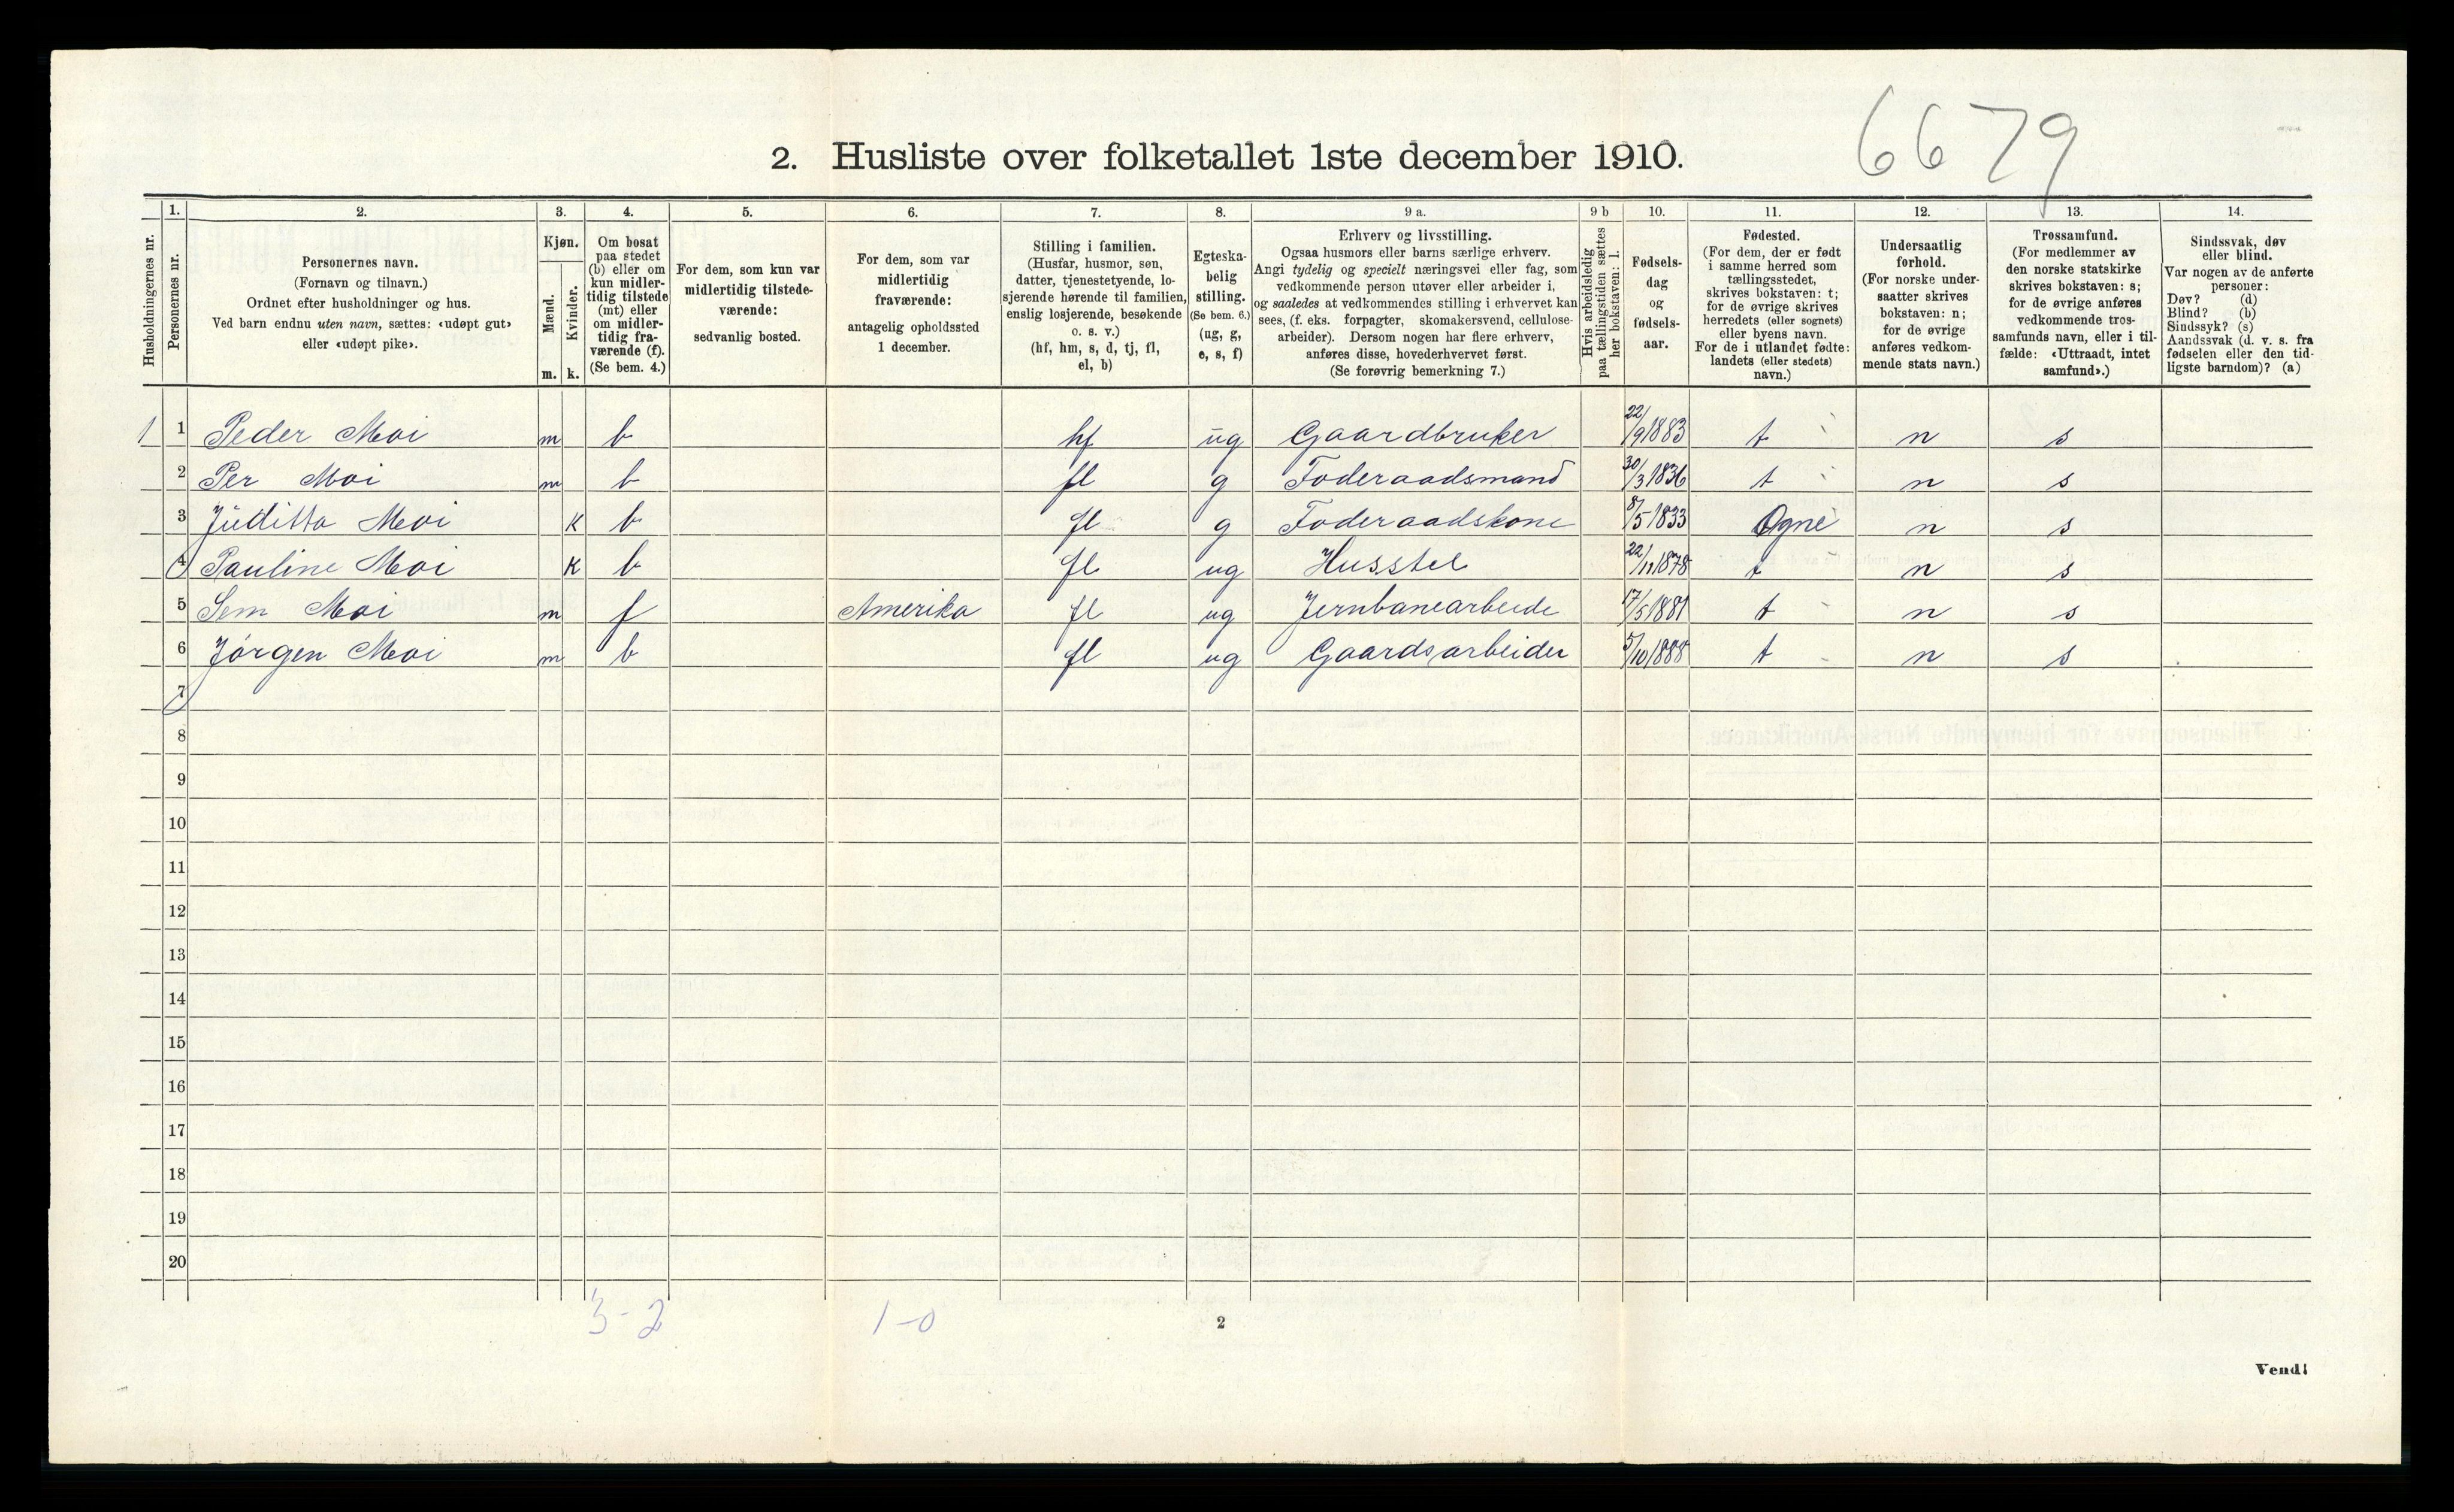 6679
2. Husliste over folketallet 1ste december 1910.
Husholdningernes nr.
1.
Personernes nr.
2.
Personernes navn.
(Fornavn og tilnavn.)
Ordnet efter husholdninger og hus.
Ved barn endnu uten navn, sættes: «udøpt gut»
eller «udøpt pike».
3.
Kjøn.
Mænd.
Kvinder.
m. k.
4.
Om bosat
paa stedet
(b) eller om
kun midler-
tidig tilstede
(mt) eller
om midler-
tidig fra-
værende (f).
(Se bem. 4.)
5.
For dem, som kun var
midlertidig tilstede-
værende:
sedvanlig bosted.
6.
For dem, som var
midlertidig
fraværende:
antagelig opholdssted
1 december.
7.
Stilling i familien.
(Husfar, husmor, søn,
datter, tjenestetyende, lo-
sjerende hørende til familien,
enslig losjerende, besøkende
o. s. v.)
(hf, hm, s, d, tj, fl,
el, b)
8.
Egteska-
belig
stilling.
(Se bem. 6.)
(ug, g,
e, s, f)
9 a.
Erhverv og livsstilling.
Ogsaa husmors eller barns særlige erhverv.
Angi tydelig og specielt næringsvei eller fag, som
vedkommende person utøver eller arbeider i,
og saaledes at vedkommendes stilling i erhvervet kan
sees, (f. eks. forpagter, skomakersvend, cellulose-
arbeider). Dersom nogen har flere erhverv,
anføres disse, hovederhvervet først.
(Se forøvrig bemerkning 7.)
9 b
Hvis arbeidsledig
paa tællingstiden sættes
her bokstaven: l.
10.
Fødsels-
dag
og
fødsels-
aar.
11.
Fødested.
(For dem, der er født
i samme herred som
tællingsstedet,
skrives bokstaven: t;
for de øvrige skrives
herredets (eller sognets)
eller byens navn.
For de i utlandet fødte:
landets (eller stedets)
navn.)
12.
Undersaatlig
forhold.
(For norske under-
saatter skrives
bokstaven: n;
for de øvrige
anføres vedkom-
mende stats navn.)
13.
Trossamfund.
(For medlemmer av
den norske statskirke
skrives bokstaven: s;
for de øvrige anføres
vedkommende tros-
samfunds navn, eller i til-
fælde: «Uttraadt, intet
samfund».)
14.
Sindssvak, døv
eller blind.
Var nogen av de anførte
personer:
Døv? (d)
Blind? (b)
Sindssyk? (s)
Aandssvak (d. v. s. fra
fødselen eller den tid-
ligste barndom)? (a)
1 1 Peder Moi m b hf ug Gaardbruker 22/9 1883 t n s
2 Per Moi m b fl g Foderaadsmand 30/3 1836 t n s
3 Juditta Moi k b fl g Foderaadskone 8/5 1833 Ogne n s
4 Pauline Moi k b fl ug Husstel 22/11 1878 t n s
5 Sem Moi m f Amerika fl ug Jernbanearbeide 17/5 1881 t n s
6 Jørgen Moi m b fl ug Gaardsarbeider 5/10 1888 t n s
7
8
9
10
11
12
13
14
15
16
17
18
19
20
3-2 1-0
2
Vend!